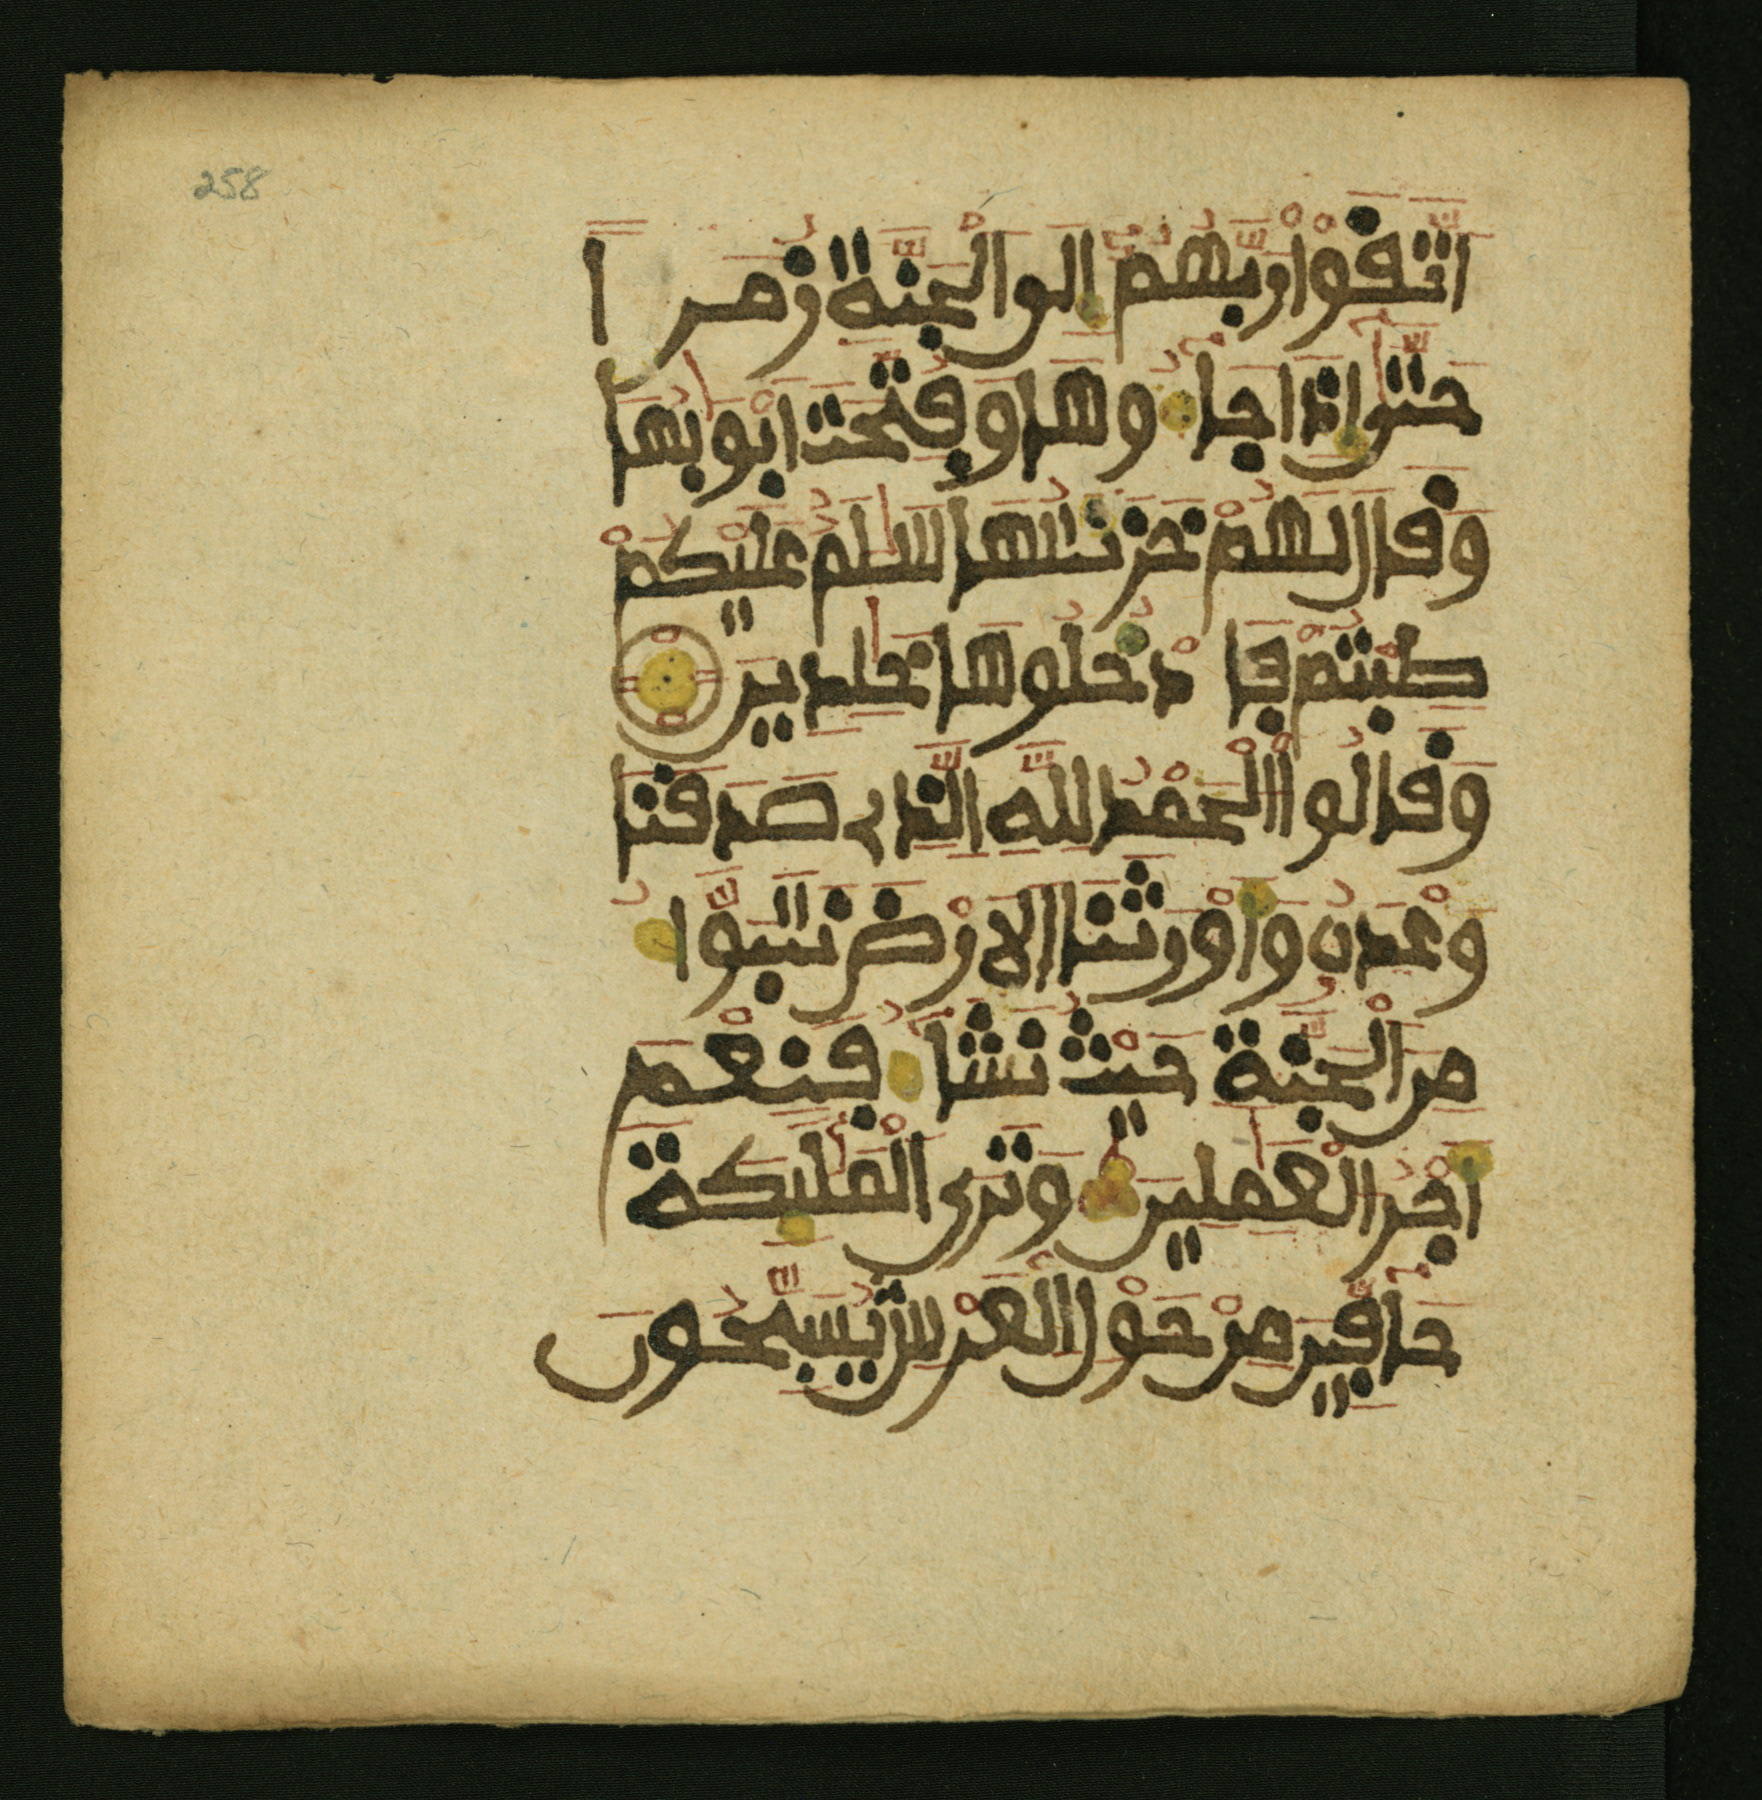 258
اتَّقَوْا رَبَّهُمُ إِلَى الْجَنَّةِ زُمَرًا
حَتَّىٰ إِذَا جَاءُوهَا وَفُتِّحَتَ ابْوَابُهَا
وَقَالَ لَهُمْ خَزَنَتُهَا سَلَٰمٌ عَلَيْكُمْ
طِبْتُمْ فَادْخُلُوهَا خَٰلِدِينَ
وَقَالُوا الْحَمْدُ لِلَّهِ الَّذِي صَدَقَنَا
وَعْدَهُ وَأَوْرَثَنَا الَارْضَ نَتَبَوَّأُ
مِنَ الْجَنَّةِ حَيْثُ نَشَاءُ فَنِعْمَ
أَجْرُ الْعَٰمِلِينَ وَتَرَى الْمَلَٰئِكَةَ
حَافِّينَ مِنْ حَوْلِ الْعَرْشِ يُسَبِّحُونَ